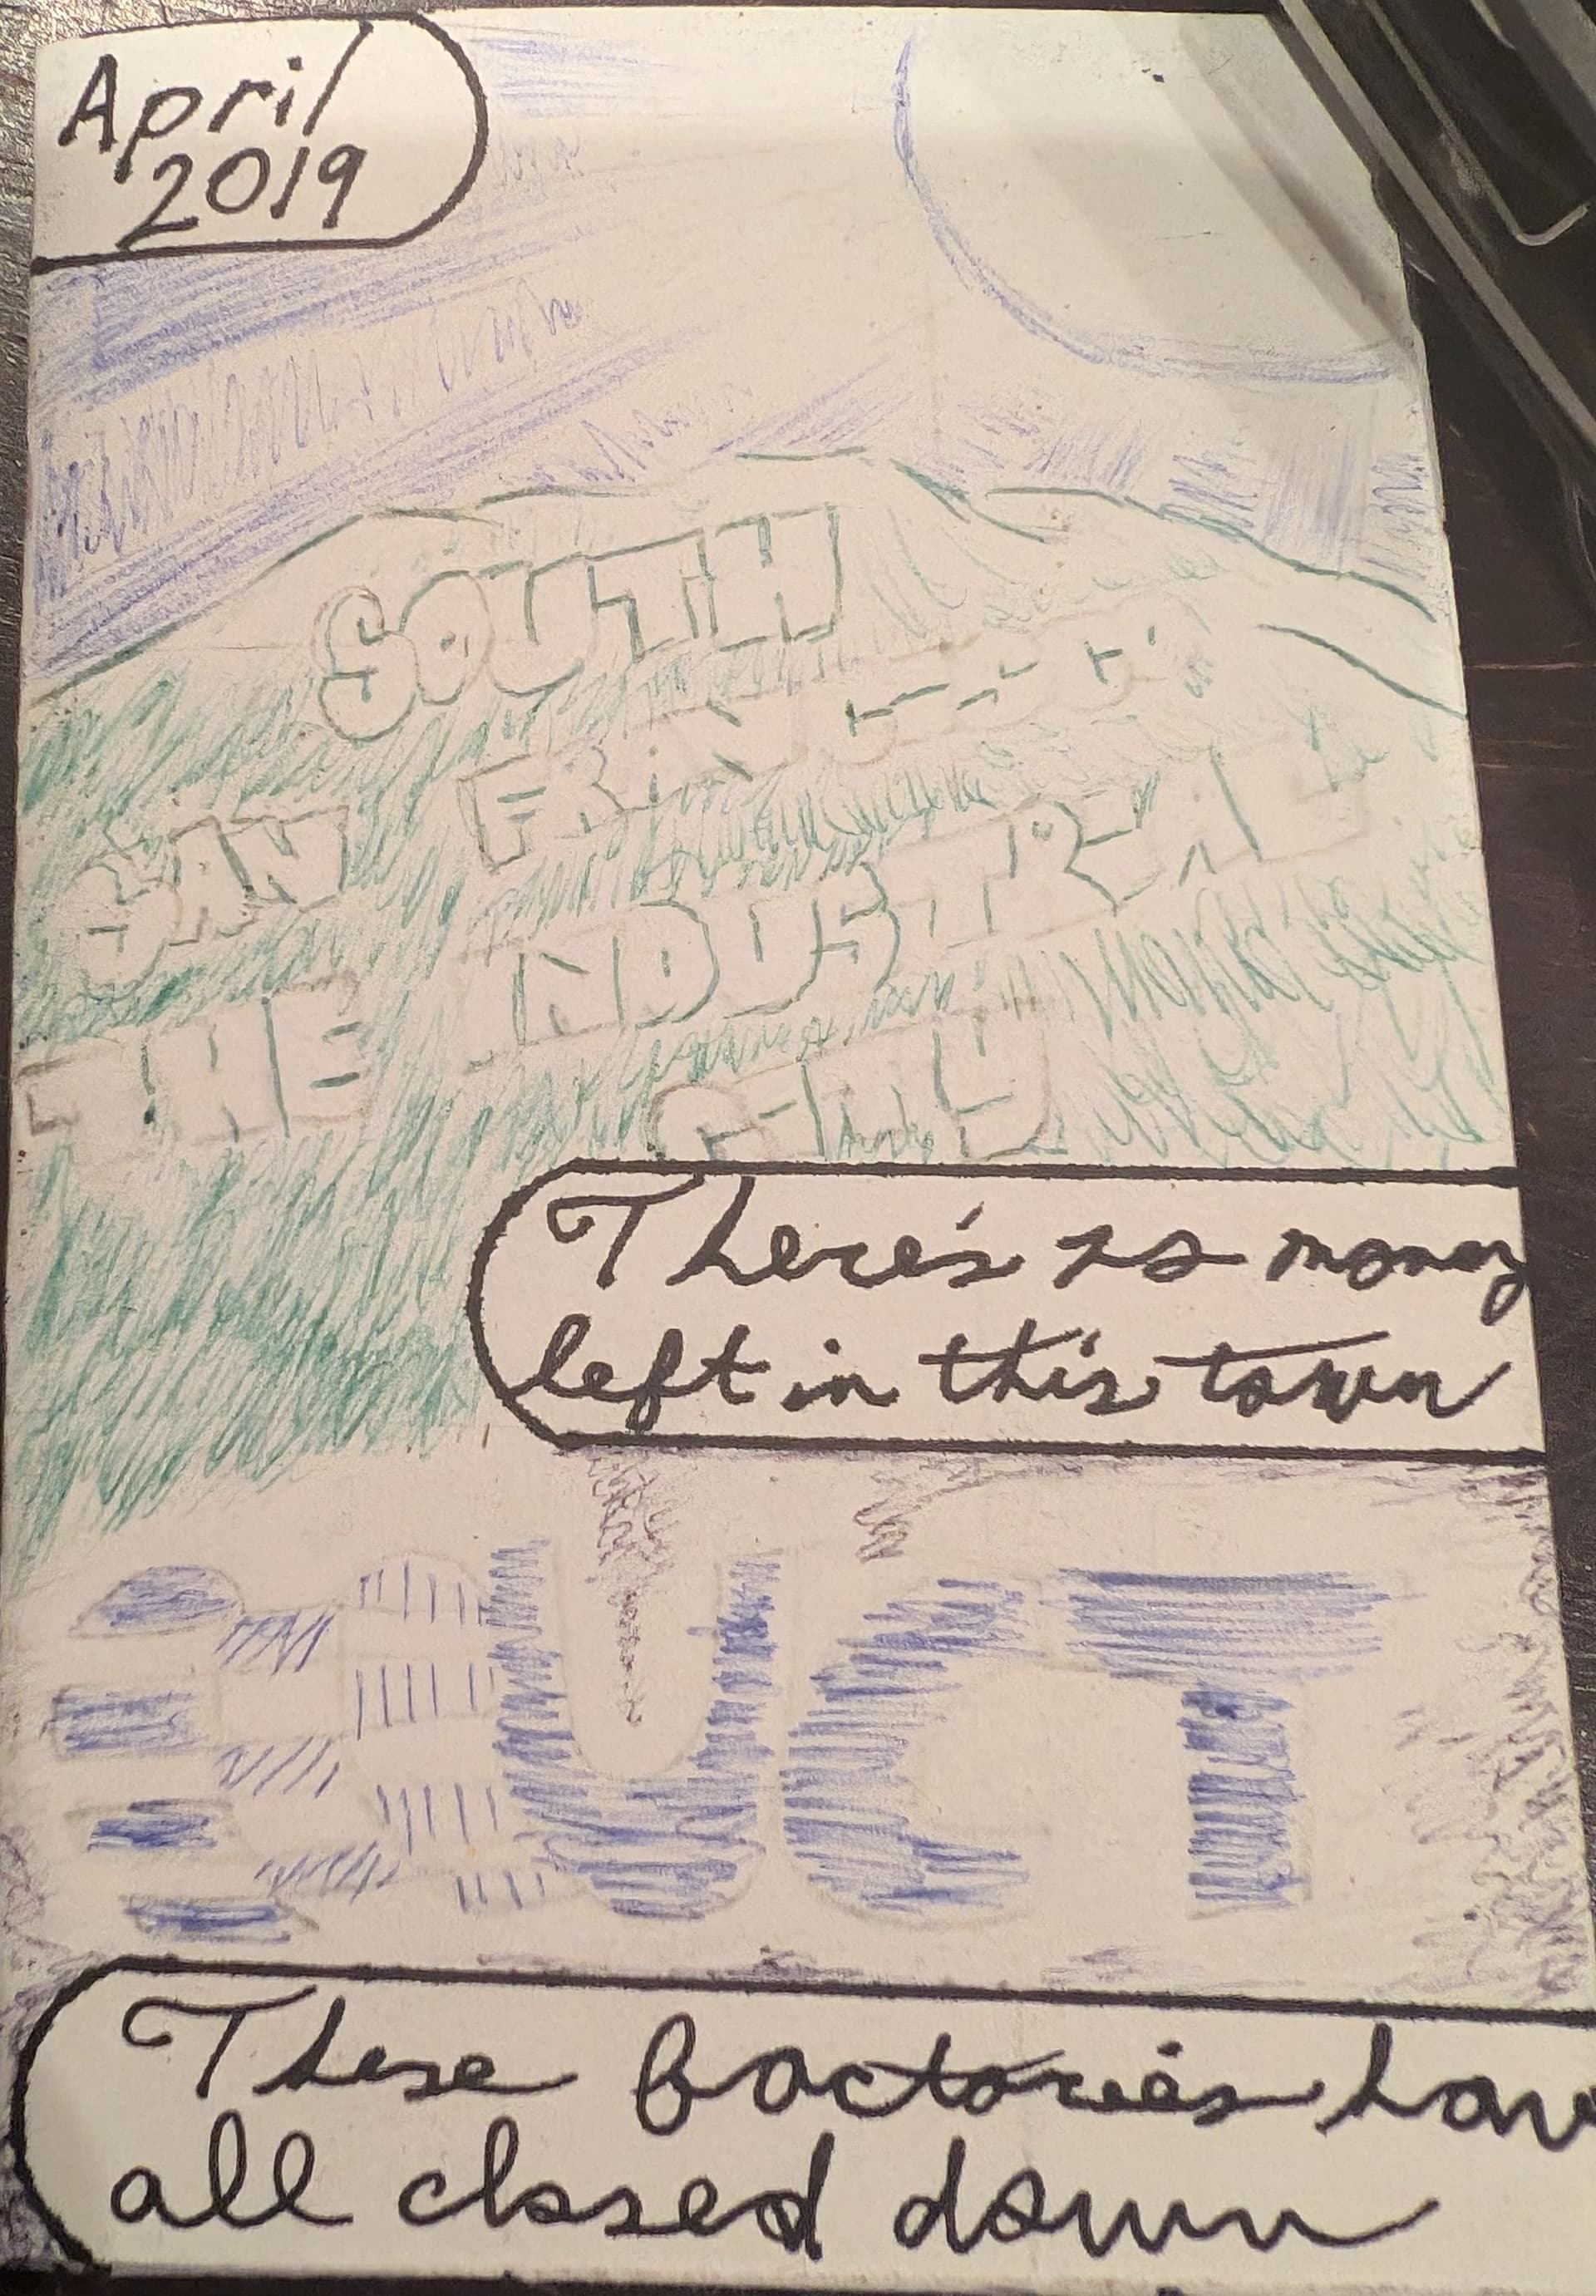 April
2019
SOUTH
SAN FRANCISCO
THE INDUSTRIAL
CITY
There's no money
left in this town
These factories hav
all closed down